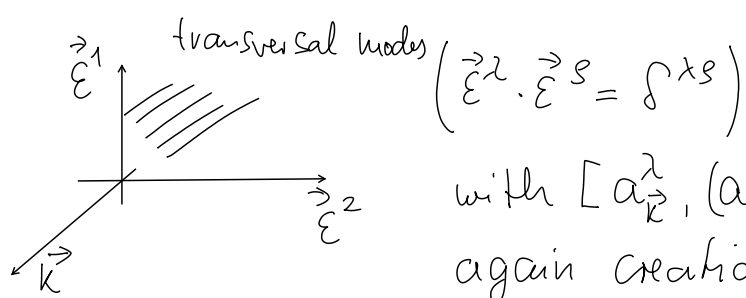 transversal modes
ε⃗¹
(ε⃗^λ · ε⃗^ρ = δ^{λρ})
with [a^λ_{k⃗}, (a
ε⃗²
k⃗
again creatio